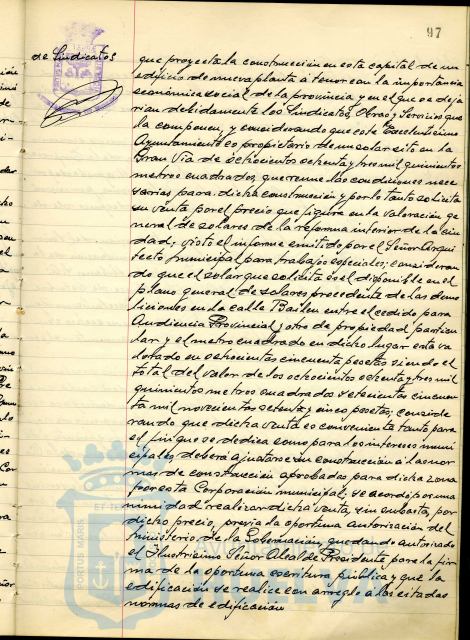 97
de Sindicatos
que proyecta la construcción en esta capital de un
edificio de nueva planta a tenor con la importancia
económica social de la provincia y en el que se deja
rian debidamente los Sindicatos, Obras y Servicios que
la componen, y considerando que este Excelentísimo
Ayuntamiento es propietario de un solar sito en la
Gran Via de ochocientos ochenta y tres mil quinientos
metros cuadrados, que reune las condiciones nece
sarias para dicha construcción y por lo tanto solicita
su venta por el precio que figura en la valoración ge
neral de solares de la reforma interior de la ciu
dad; visto el informe emitido por el Señor Arqui
tecto municipal para trabajos especiales; consideran
do que el solar que solicita es el disponible en el
plano general de solares procedente de las demo
liciones en la calle Bailen entre el cedido para
Audiencia Provincial y otro de propiedad particu
lar y el metro cuadrado en dicho lugar esta va
lorado en ochocientas cincuenta pesetas siendo el
total del valor de los ochocientos ochenta y tres mil
quinientos metros cuadrados setecientas cincuen
ta mil novecientas setenta y cinco pesetas; conside
rando que dicha venta es conveniente tanto para
el fin que se dedica como para los intereses muni
cipales, deberá ajustarse su construcción a las nor
mas de construcción aprobadas para dicha zona
por esta Corporación municipal; se acordó por una
nimidad realizar dicha venta, sin subasta, por
dicho precio, previa la oportuna autorización del
Ministerio de la Gobernación, quedando autorizado
el Ilustrísimo Señor Alcalde Presidente para la fir
ma de la oportuna escritura pública y que la
edificación se realice con arreglo a las citadas
normas de edificación
PORTUS MARIS